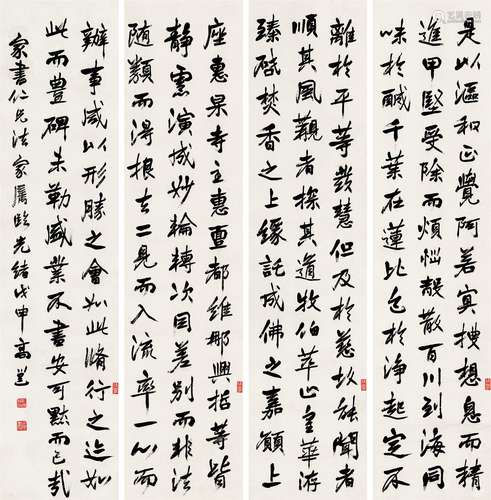 是以漚和正覺阿若冥搜想息而精
進甲堅受除而煩惱賊散百川到海同
味於鹹千葉在蓮比色於淨起定不
離於平等發慧但及於慈故能聞者
順其風觀者探其道牧伯萃止皇華游
臻啟焚香之上緣託成佛之嘉願上
座惠杲寺主惠亶都維那興指等皆
靜慮演成妙輪轉次因差別而非法
隨類而得根去二見而入流率一心而
辦事咸以形勝之會如此脩行之迹如
此而豐碑未勒盛業不書安可默而已哉
家書仁兄法家屬臨光緒戊申高邕